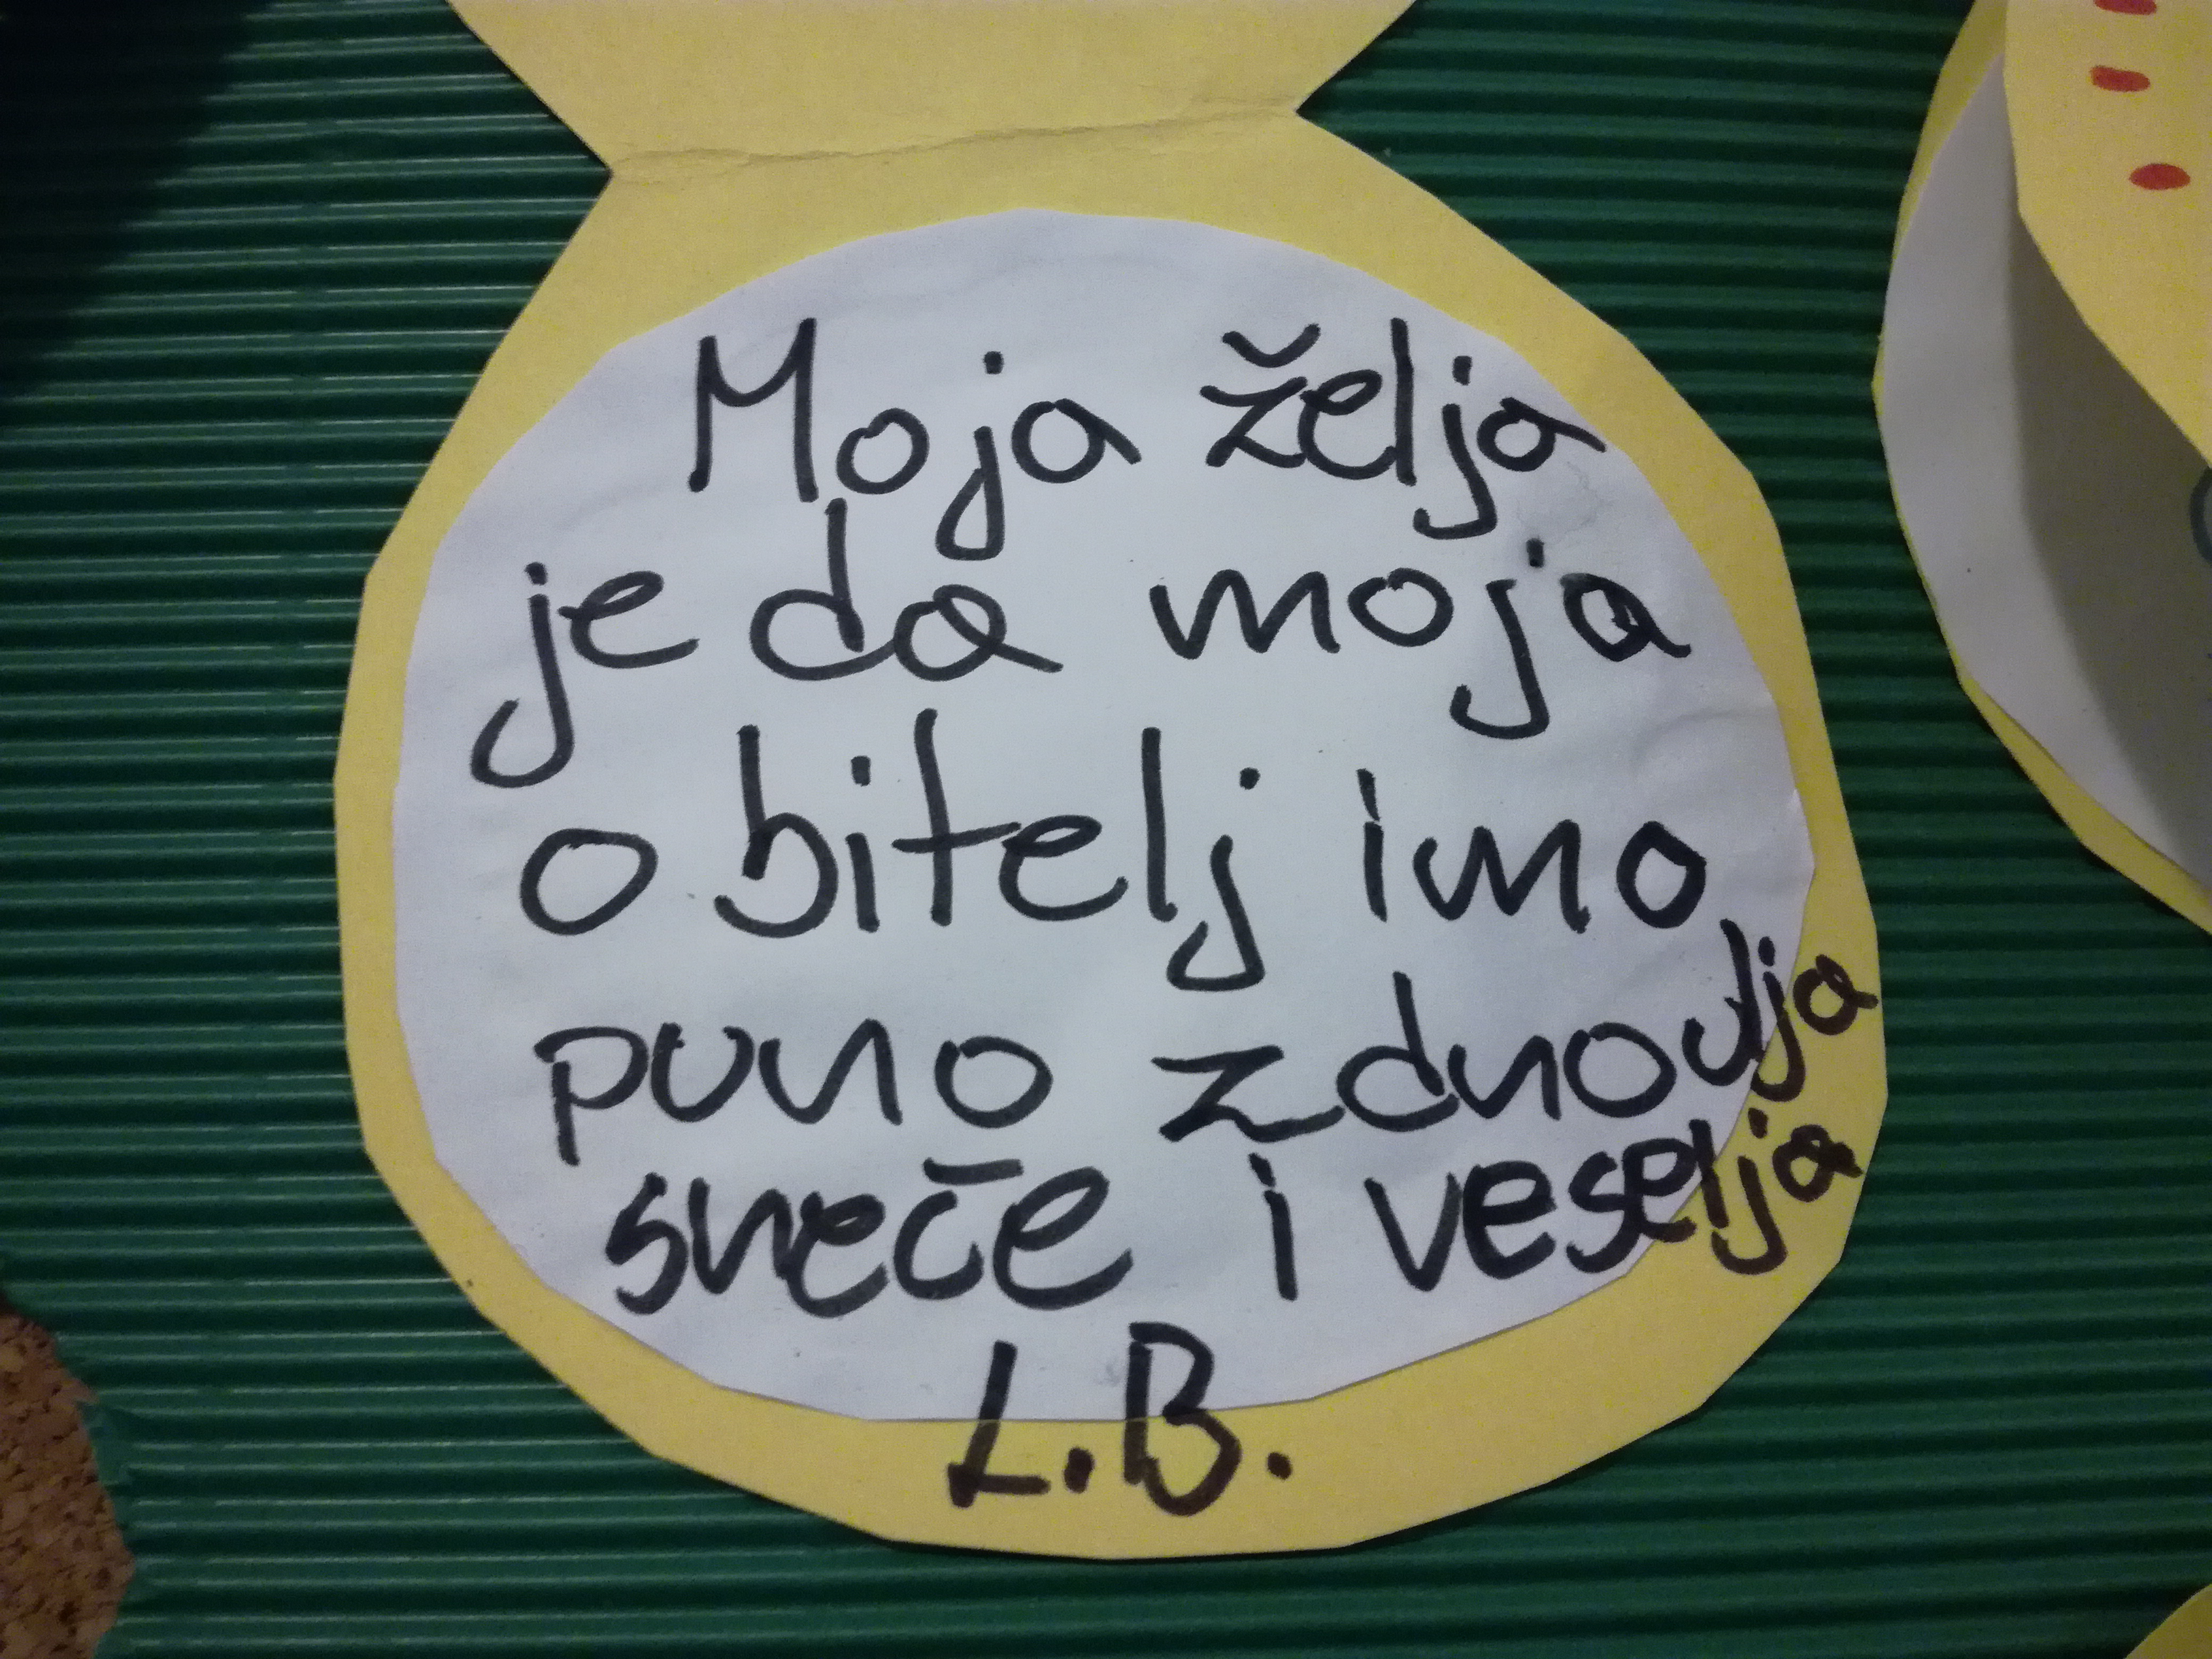 Moja želja
je da moja
obitelj imo
puno zdnovlja
sneče i veselja
L.B.